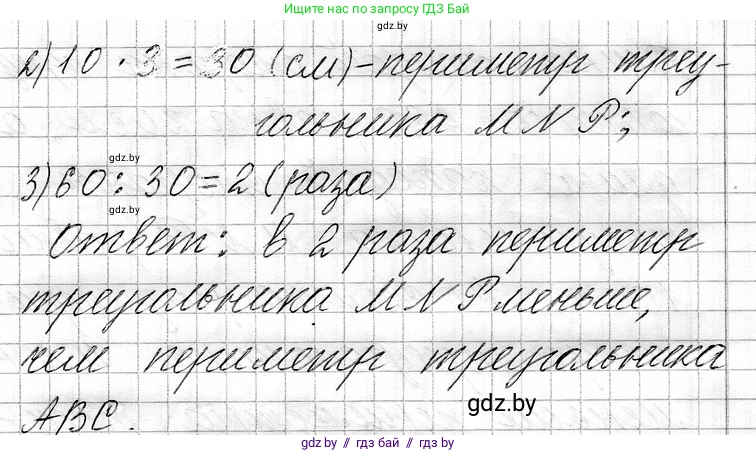 Ищите нас по запросу ГДЗ Бай
gdz.by
2) 10 · 3 = 30 (см) - периметр треу-
гольника MNP;
gdz.by
3) 60 : 30 = 2 (раза)
gdz.by
Ответ: в 2 раза периметр
треугольника MNP меньше,
чем периметр треугольника
gdz.by
ABC.
gdz.by // гдз бай // гдз by